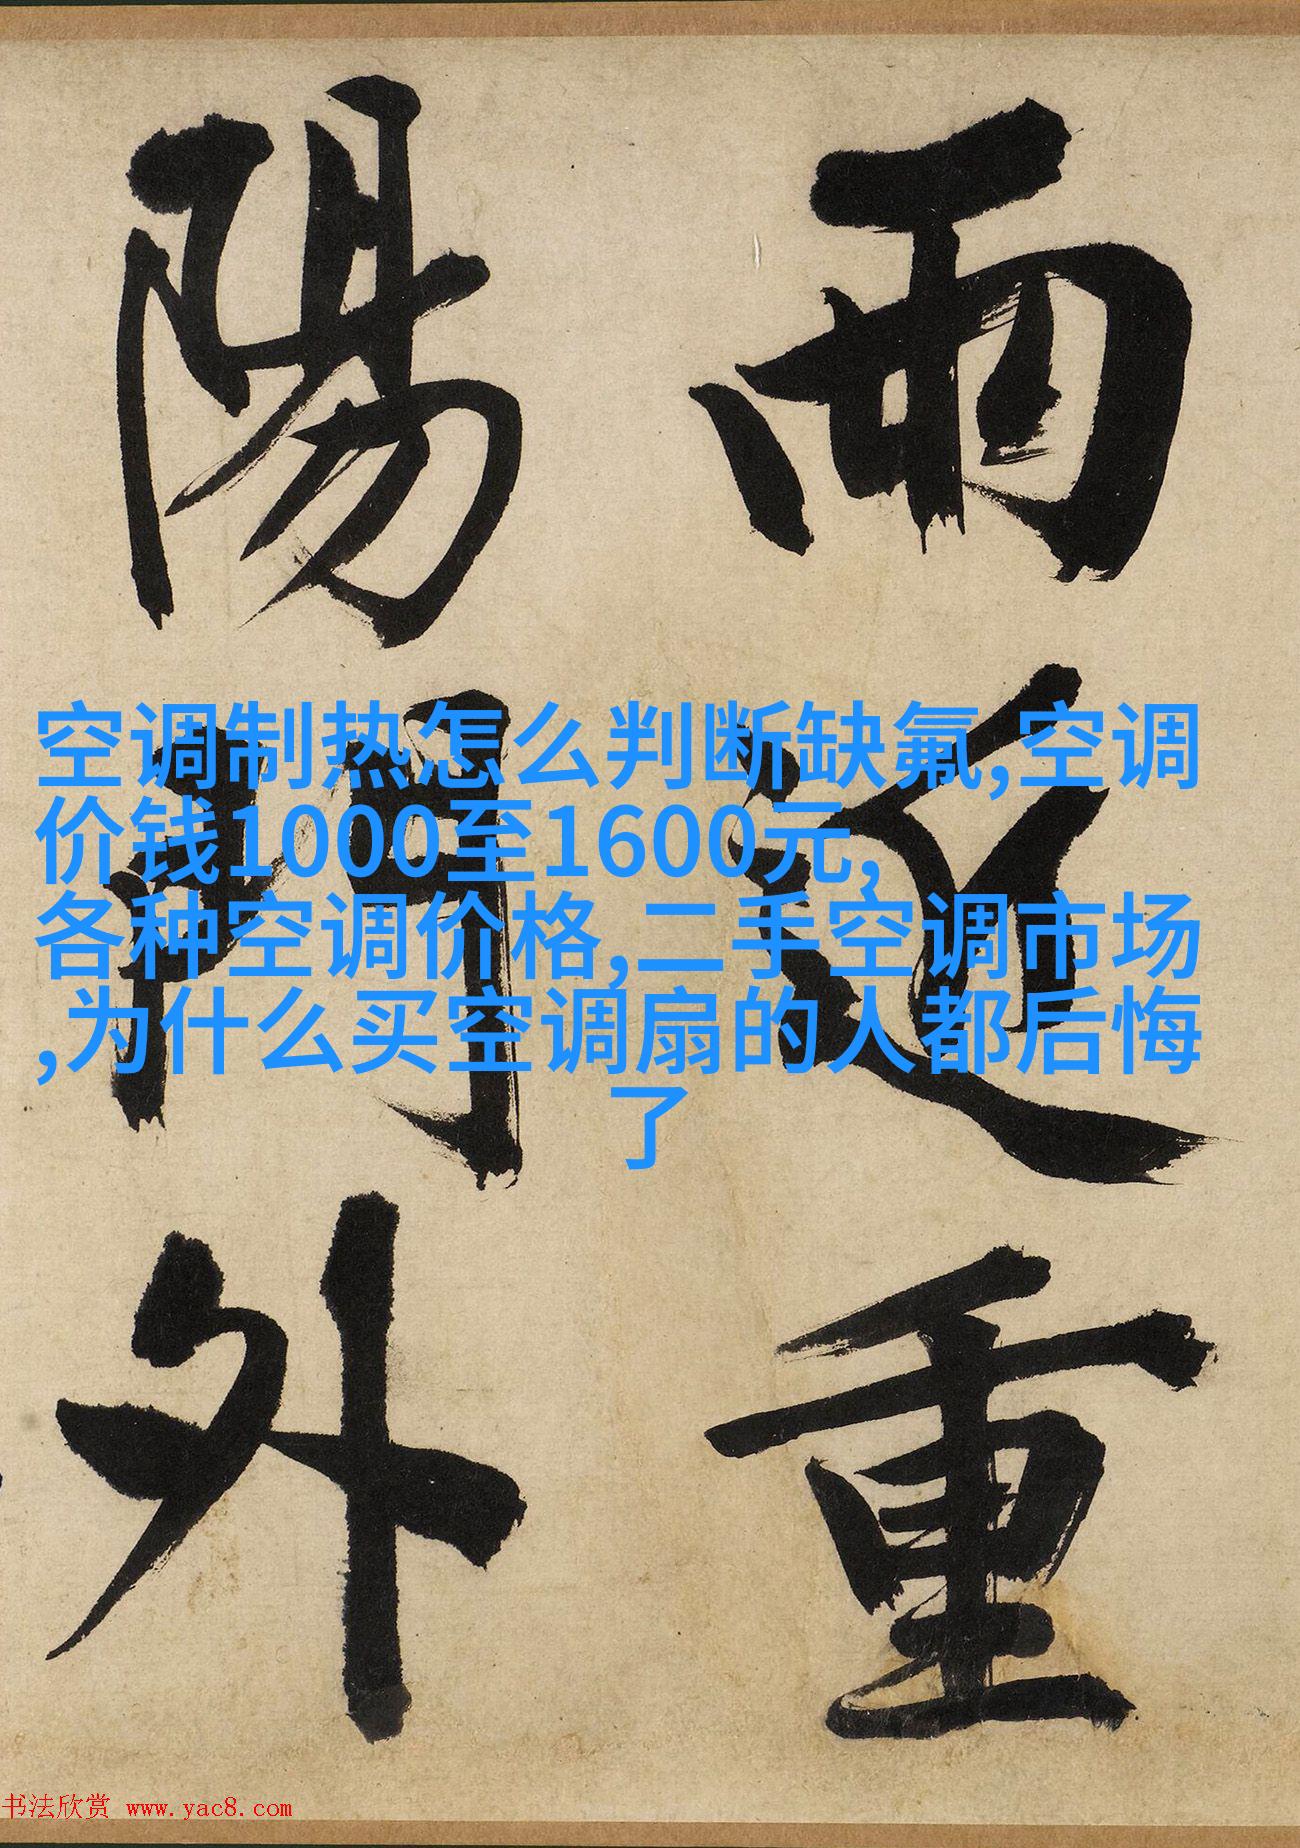 雨近重
陽門外
空调制热怎么判断缺氟,空调
价钱1000至1600元,
各种空调价格,二手空调市场
,为什么买空调扇的人都后悔
了
书法欣赏 www.yac8.com